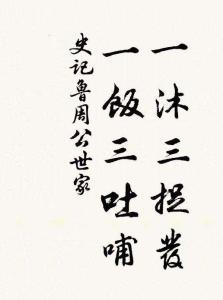 一沐三捉發
一飯三吐哺
史记鲁周公世家